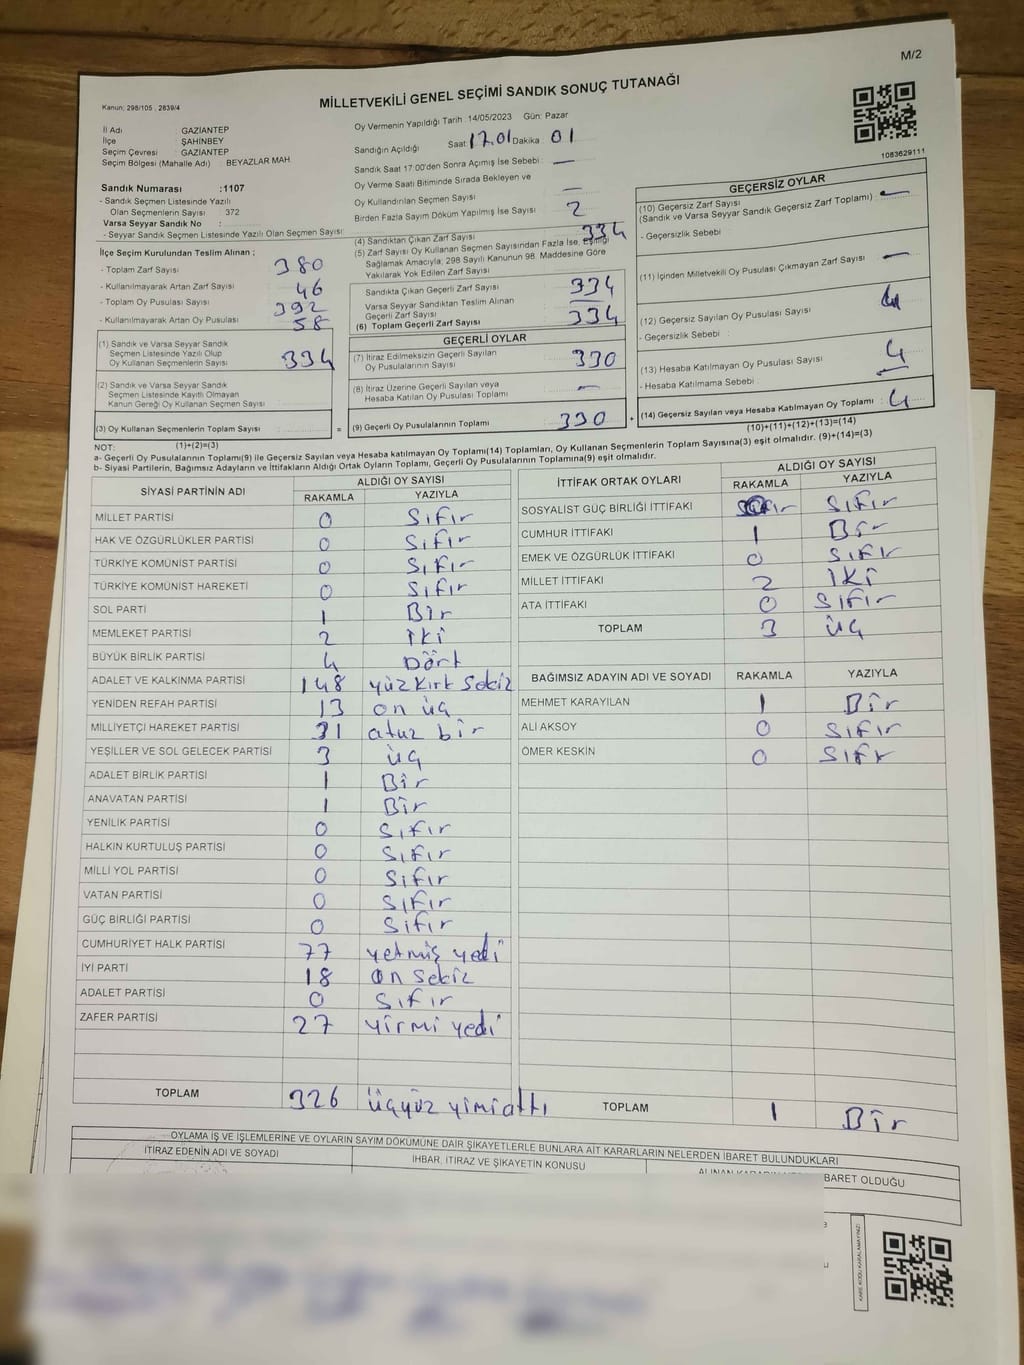 M/2
Kanun; 298/105 , 2839/4
MİLLETVEKİLİ GENEL SEÇİMİ SANDIK SONUÇ TUTANAĞI
1083629111
İl Adı : GAZİANTEP
İlçe : ŞAHİNBEY
Seçim Çevresi : GAZİANTEP
Seçim Bölgesi (Mahalle Adı) : BEYAZLAR MAH.
Sandık Numarası :1107
- Sandık Seçmen Listesinde Yazılı
Olan Seçmenlerin Sayısı : 372
Varsa Seyyar Sandık No :
- Seyyar Sandık Seçmen Listesinde Yazılı Olan Seçmen Sayısı
Oy Vermenin Yapıldığı Tarih :14/05/2023 Gün: Pazar
Sandığın Açıldığı Saat: 17.01 Dakika : 01
Sandık Saat 17:00'den Sonra Açımış İse Sebebi : —
Oy Verme Saati Bitiminde Sırada Bekleyen ve
Oy Kullandırılan Seçmen Sayısı —
Birden Fazla Sayım Döküm Yapılmış İse Sayısı 2
İlçe Seçim Kurulundan Teslim Alınan ;
- Toplam Zarf Sayısı 380
- Kullanılmayarak Artan Zarf Sayısı 46
- Toplam Oy Pusulası Sayısı 392
- Kullanılmayarak Artan Oy Pusulası 58
(1) Sandık ve Varsa Seyyar Sandık
Seçmen Listesinde Yazılı Olup
Oy Kullanan Seçmenlerin Sayısı 334
(2) Sandık ve Varsa Seyyar Sandık
Seçmen Listesinde Kayıtlı Olmayan
Kanun Gereği Oy Kullanan Seçmen Sayısı
(3) Oy Kullanan Seçmenlerin Toplam Sayısı =
(1)+(2)=(3)
(4) Sandıktan Çıkan Zarf Sayısı 334
(5) Zarf Sayısı Oy Kullanan Seçmen Sayısından Fazla İse, Eşitliği
Sağlamak Amacıyla; 298 Sayılı Kanunun 98. Maddesine Göre
Yakılarak Yok Edilen Zarf Sayısı
Sandıkta Çıkan Geçerli Zarf Sayısı 334
Varsa Seyyar Sandıktan Teslim Alınan
Geçerli Zarf Sayısı
(6) Toplam Geçerli Zarf Sayısı 334
GEÇERLİ OYLAR
(7) İtiraz Edilmeksizin Geçerli Sayılan
Oy Pusulalarının Sayısı 330
(8) İtiraz Üzerine Geçerli Sayılan veya
Hesaba Katılan Oy Pusulası Toplamı —
(9) Geçerli Oy Pusulalarının Toplamı 330 +
GEÇERSİZ OYLAR
(10) Geçersiz Zarf Sayısı
(Sandık ve Varsa Seyyar Sandık Geçersiz Zarf Toplamı) : —
- Geçersizlik Sebebi :
(11) İçinden Milletvekili Oy Pusulası Çıkmayan Zarf Sayısı —
(12) Geçersiz Sayılan Oy Pusulası Sayısı 4
- Geçersizlik Sebebi :
(13) Hesaba Katılmayan Oy Pusulası Sayısı 4
- Hesaba Katılmama Sebebi :
(14) Geçersiz Sayılan veya Hesaba Katılmayan Oy Toplamı : 4
(10)+(11)+(12)+(13)=(14)
NOT:
a- Geçerli Oy Pusulalarının Toplamı(9) ile Geçersiz Sayılan veya Hesaba katılmayan Oy Toplamı(14) Toplamları, Oy Kullanan Seçmenlerin Toplam Sayısına(3) eşit olmalıdır. (9)+(14)=(3)
b- Siyasi Partilerin, Bağımsız Adayların ve İttifakların Aldığı Ortak Oyların Toplamı, Geçerli Oy Pusulalarının Toplamına(9) eşit olmalıdır.
SİYASİ PARTİNİN ADI ALDIĞI OY SAYISI
RAKAMLA YAZIYLA
MİLLET PARTİSİ 0 Sıfır
HAK VE ÖZGÜRLÜKLER PARTİSİ 0 Sıfır
TÜRKİYE KOMÜNİST PARTİSİ 0 Sıfır
TÜRKİYE KOMÜNİST HAREKETİ 0 Sıfır
SOL PARTİ 1 Bir
MEMLEKET PARTİSİ 2 iki
BÜYÜK BİRLİK PARTİSİ 4 Dört
ADALET VE KALKINMA PARTİSİ 148 yüz kırk sekiz
YENİDEN REFAH PARTİSİ 13 on üç
MİLLİYETÇİ HAREKET PARTİSİ 31 otuz bir
YEŞİLLER VE SOL GELECEK PARTİSİ 3 üç
ADALET BİRLİK PARTİSİ 1 Bir
ANAVATAN PARTİSİ 1 Bir
YENİLİK PARTİSİ 0 Sıfır
HALKIN KURTULUŞ PARTİSİ 0 Sıfır
MİLLİ YOL PARTİSİ 0 Sıfır
VATAN PARTİSİ 0 Sıfır
GÜÇ BİRLİĞİ PARTİSİ 0 Sıfır
CUMHURİYET HALK PARTİSİ 77 yetmiş yedi
İYİ PARTİ 18 on sekiz
ADALET PARTİSİ 0 Sıfır
ZAFER PARTİSİ 27 yirmi yedi
TOPLAM 326 üçyüz yimi altı
İTTİFAK ORTAK OYLARI ALDIĞI OY SAYISI
RAKAMLA YAZIYLA
SOSYALİST GÜÇ BİRLİĞİ İTTİFAKI Sıfır
CUMHUR İTTİFAKI 1 Bir
EMEK VE ÖZGÜRLÜK İTTİFAKI 0 Sıfır
MİLLET İTTİFAKI 2 iki
ATA İTTİFAKI 0 Sıfır
TOPLAM 3 üç
BAĞIMSIZ ADAYIN ADI VE SOYADI RAKAMLA YAZIYLA
MEHMET KARAYILAN 1 Bir
ALİ AKSOY 0 Sıfır
ÖMER KESKİN 0 Sıfır
TOPLAM 1 Bir
OYLAMA İŞ VE İŞLEMLERİNE VE OYLARIN SAYIM DÖKÜMÜNE DAİR ŞİKAYETLERLE BUNLARA AİT KARARLARIN NELERDEN İBARET BULUNDUKLARI
İTİRAZ EDENİN ADI VE SOYADI İHBAR, İTİRAZ VE ŞİKAYETİN KONUSU ALINAN KARARIN BARET OLDUĞU
KARE KODU KARALAMAYINIZ!